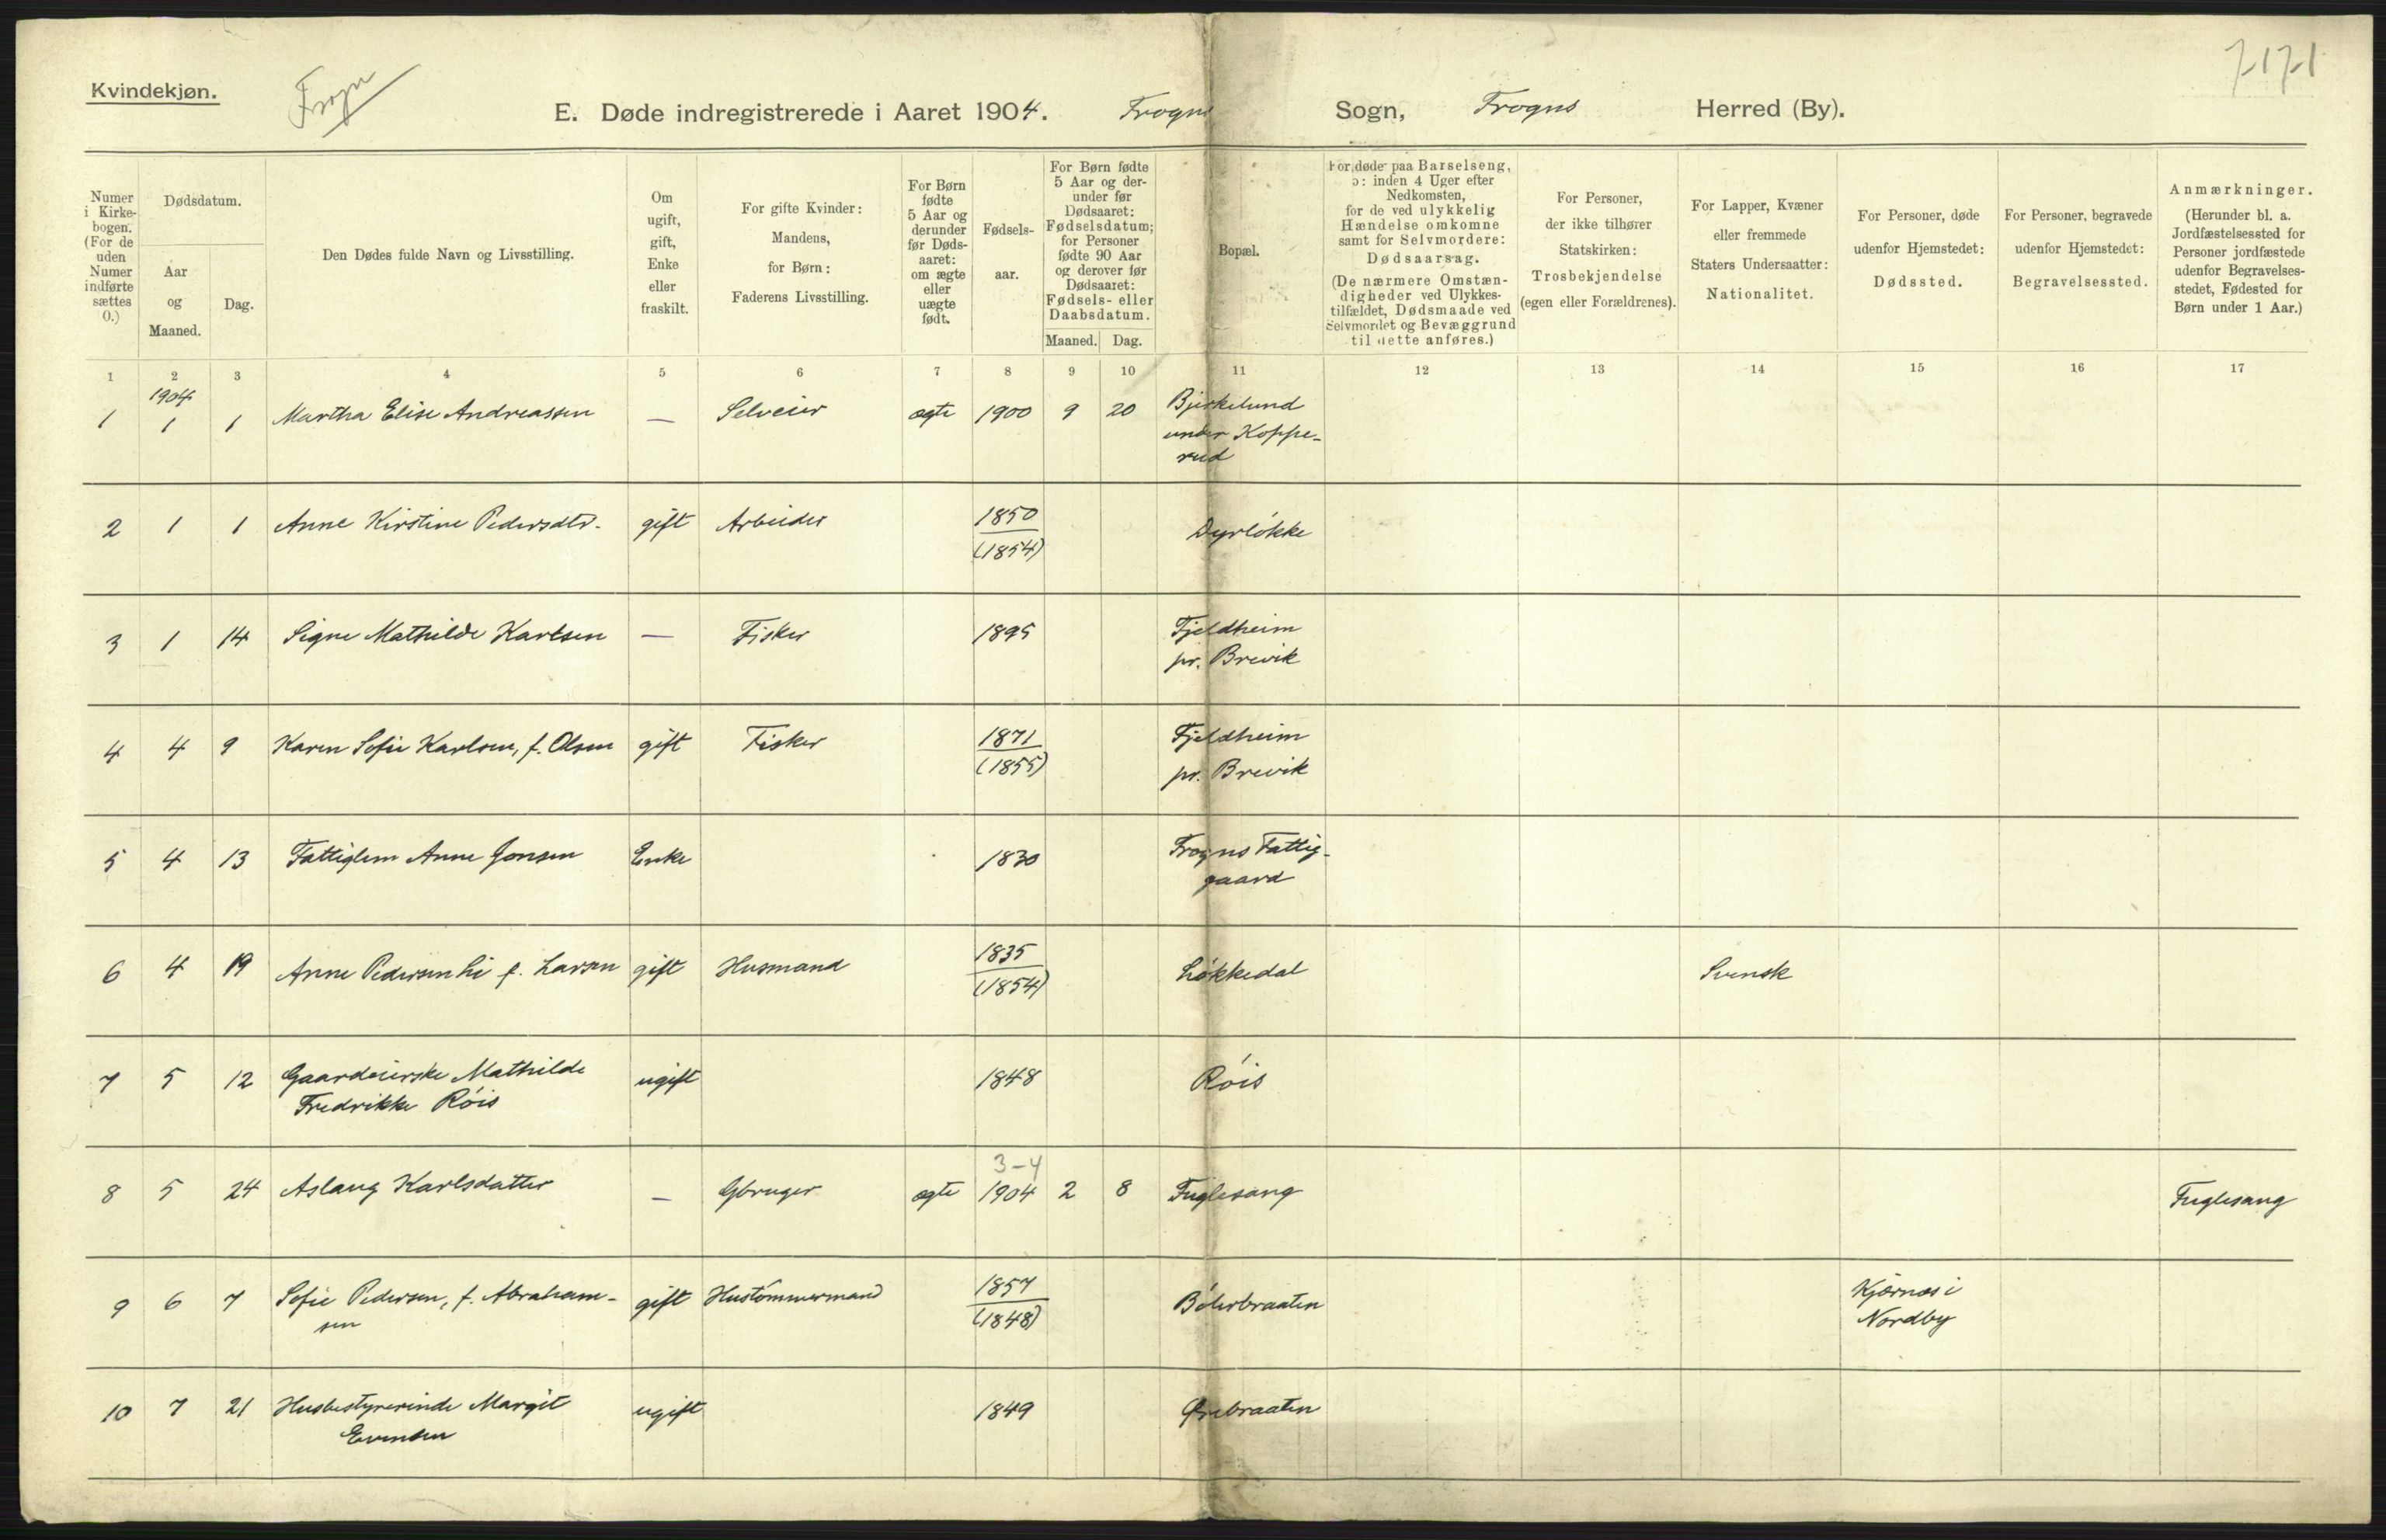 Kvindekjøn.
Frogn
E. Døde indregistrerede i Aaret 1904. Frogns Sogn, Frogns Herred (By).
7171
Numer i Kirkebogen. (For de uden Numer indførte sættes 0.)
Dødsdatum.
Aar og Maaned.
Dag.
Den Dødes fulde Navn og Livsstilling.
Om ugift, gift, Enke eller fraskilt.
For gifte Kvinder: Mandens, for Børn: Faderens Livsstilling.
For Børn fødte 5 Aar og derunder før Dødsaaret: om ægte eller uægte født.
Fødselsaar.
For Børn fødte 5 Aar og derunder før Dødsaaret: Fødselsdatum; for Personer fødte 90 Aar og derover før Dødsaaret: Fødsels- eller Daabsdatum.
Maaned. Dag.
Bopæl.
For døde paa Barselseng, ɔ: inden 4 Uger efter Nedkomsten, for de ved ulykkelig Hændelse omkomne samt for Selvmordere: Dødsaarsag.
(De nærmere Omstændigheder ved Ulykkestilfældet, Dødsmaade ved Selvmordet og Bevæggrund til dette anføres.)
For Personer, der ikke tilhører Statskirken: Trosbekjendelse (egen eller Forældrenes).
For Lapper, Kvæner eller fremmede Staters Undersaatter: Nationalitet.
For Personer, døde udenfor Hjemstedet: Dødssted.
For Personer, begravede udenfor Hjemstedet: Begravelsessted.
Anmærkninger.
(Herunder bl. a. Jordfæstelsessted for Personer jordfæstede udenfor Begravelsesstedet, Fødested for Børn under 1 Aar.)
1 2 3 4 5 6 7 8 9 10 11 12 13 14 15 16 17
1904
1 1 1 Martha Elise Andreassen — Selveier ægte 1900 9 20 Bjerkelund
under Kopperud
2 1 1 Anne Kirstine Pedersdtr. gift Arbeider 1850 (1854) Dyrløkke
3 1 14 Signe Mathilde Karlsen — Fisker 1895 Fjeldheim
pr. Brevik
4 4 9 Karen Sofie Karlsen, f. Olsen gift Fisker 1871 (1855) Fjeldheim
pr. Brevik
5 4 13 Fattiglem Anne Jonsen Enke 1830 Frogns Fattig-
gaard
6 4 19 Anne Pedersen f. Larsen gift Husmand 1835 (1854) Løkkedal Svensk
7 5 12 Gaardeierske Mathilde ugift 1848 Røis
Fredrikke Røis
3-4
8 5 24 Aslaug Karlsdatter — Gbruger ægte 1904 2 8 Fuglesang Fuglesang
9 6 7 Sofie Pedersen, f. Abraham- gift Hustømmermand 1857 (1848) Bølerbraaten Kjærnæs i
sen Nordby
10 7 21 Husbestyrerinde Margit ugift 1849 Ørebraaten
Evensen